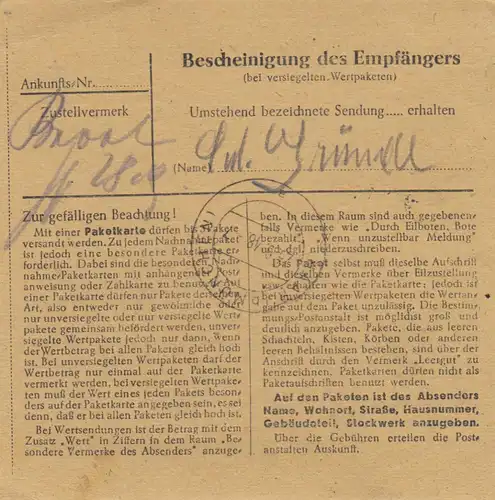 Bescheinigung des Empfängers
(bei versiegelten Wertpaketen)
Ankunfts/Nr.
Zustellvermerk
Umstehend bezeichnete Sendung..... erhalten
(Name)
Zur gefälligen Beachtung!
Mit einer Paketkarte dürfen bis Pakete
versandt werden. Zu jedem Nachnahmepaket
ist jedoch eine besondere Paketkarte er-
forderlich. Dabei sind die besonderen Nach-
nahme-Paketkarten mit anhängender Post-
anweisung oder Zahlkarte zu benutzen. Auf
einer Paketkarte dürfen nur Pakete derselben
Art, also entweder nur gewöhnliche oder
nur unversiegelte oder nur versiegelte Wert-
pakete gemeinsam befördert werden, unver-
siegelte Wertpakete jedoch nur dann, wenn
der Wertbetrag bei allen Paketen gleich hoch
ist. Bei unversiegelten Wertpaketen darf der
Wertbetrag nur einmal auf der Paketkarte
vermerkt werden, bei versiegelten Wertpake-
ten muß der Wert eines jeden Pakets beson-
ders auf der Paketkarte angegeben sein, es sei
denn, daß er bei allen Paketen gleich hoch ist.
Bei Wertsendungen ist der Betrag mit dem
Zusatz „Wert" in Ziffern in dem Raum „Be-
sondere Vermerke des Absenders" anzuge-
ben. In diesem Raum sind auch gegebenen-
falls Vermerke wie „Durch Eilboten, Bote
bezahlt", „Wenn unzustellbar Meldung"
niederzuschreiben.
Das Paket selbst muß dieselbe Aufschrift
und dieselben Vermerke über Eilzustellung
usw. erhalten wie die Paketkarte; jedoch ist
bei unversiegelten Wertpaketen die Wertan-
gabe auf dem Paket unzulässig. Die Bestim-
mungs-Postanstalt ist möglichst groß und
deutlich anzugeben. Pakete, die aus leeren
Schachteln, Kisten, Körben oder anderen
leeren Behältnissen bestehen, sind über der
Anschrift durch den Vermerk „Leergut" zu
kennzeichnen. Paketkarten dürfen nicht als
Paketaufschriften benutzt werden.
Auf den Paketen ist des Absenders
Name, Wohnort, Straße, Hausnummer,
Gebäudeteil, Stockwerk anzugeben.
Über die Gebühren erteilen die Post-
anstalten Auskunft.